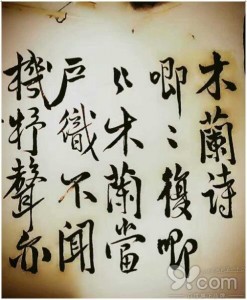 木蘭詩
唧〻復唧
〻木蘭當
戶織不聞
機杼聲亦